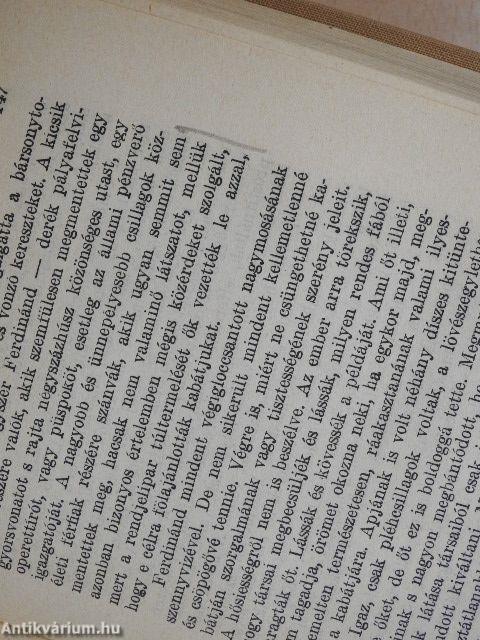 147
gatta a bársonyto-
egyszer Ferdinánd s vonzó kereszteket. A kicsik
részére valók, akik szemfülesen megmentettek egy
gyorsvonatot s rajta négyszázhúsz közönséges utast, egy
operettírót, vagy püspököt, esetleg az állami pénzverő
igazgatóját. A nagyobb és ünnepélyesebb csillagok köz-
életi férfiak részére szánvák, akik ugyan semmit sem
mentettek meg, hacsak nem valaminő látszatot, mellük
azonban bizonyos értelemben mégis közérdeket szolgált,
mert a rendjelipar túltermelését ők vezették le azzal,
hogy e célra fölajánlották kabátjukat.
Ferdinánd mindent végiglocscsantott nagymosásának
szennyvizével. De nem sikerült mindent kellemetlenné
és csöpögővé tennie. Végre is, miért ne csüngethetné ka-
bátján szorgalmának vagy tisztességének szerény jeleit.
A hősiességről nem is beszélve. Az ember arra törekszik,
hogy társai megbecsüljék és lássák, milyen rendes fából
faragták őt. Lássák és kövessék a példáját. Ami őt illeti,
nem tagadja, örömet okozna neki, ha egykor majd, meg-
természetesen, ráakasztanának valami ilyes-
a kabátjára. Apjának is volt néhány díszes kitünte-
Igaz, csak pléhcsillagok voltak, a lövészegylet
őket, de őt ez is boldoggá tette.
s nagyon megbántódott,
látása társaiból csak
kiváltani